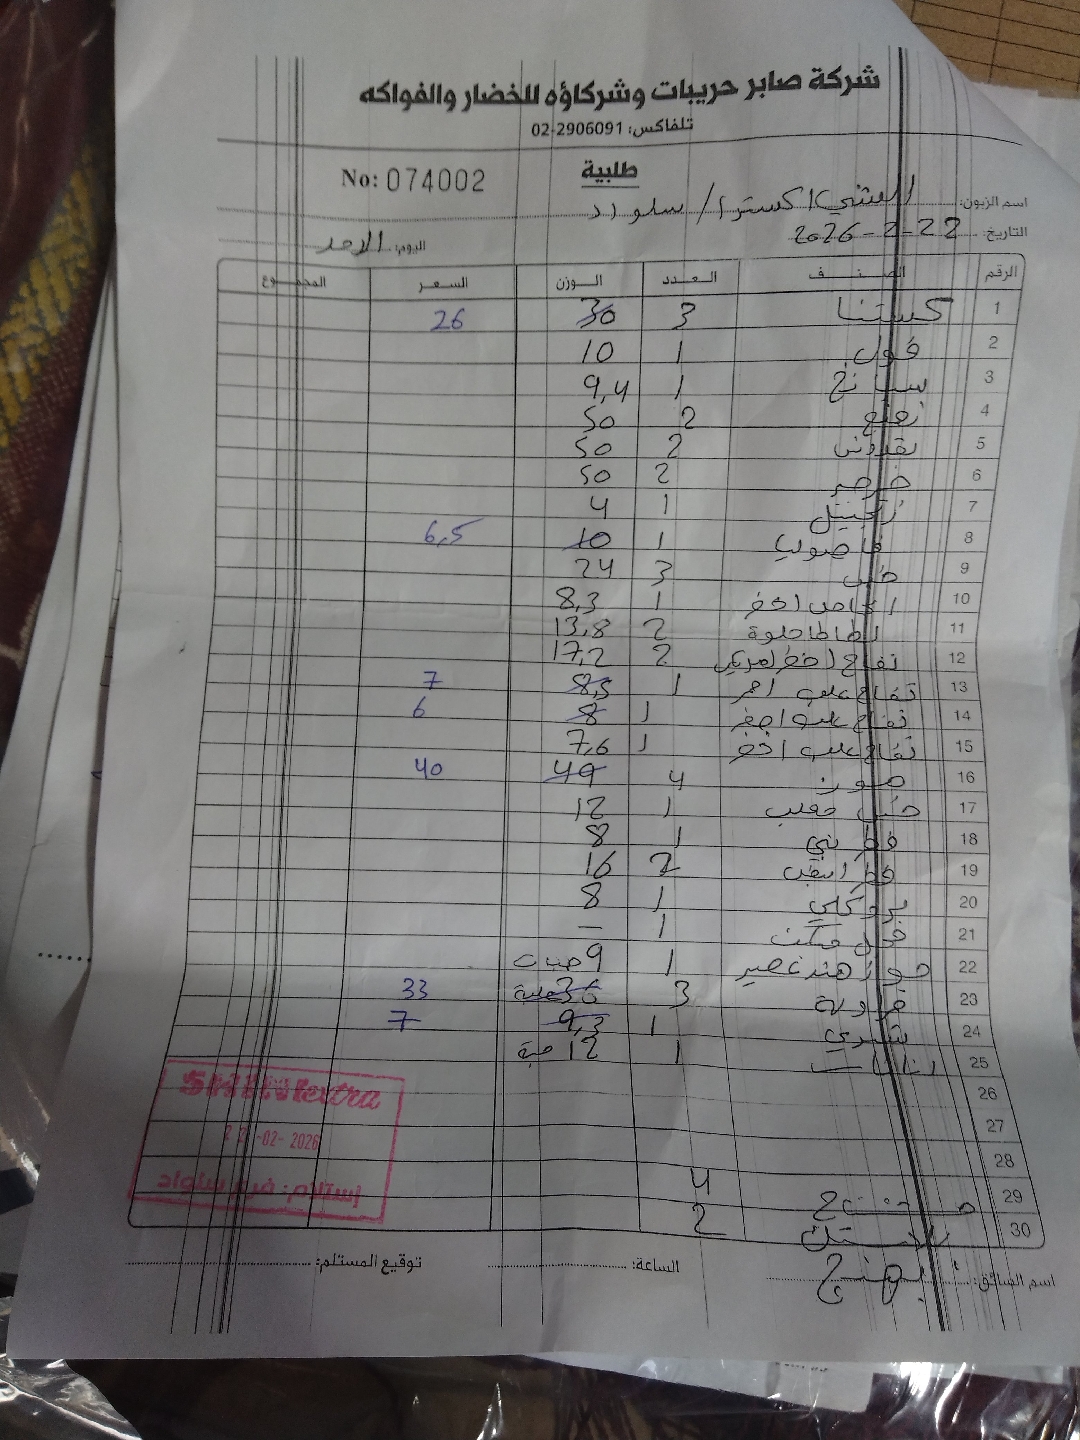 شركة صابر حريبات وشركاؤه للخضار والفواكه
تلفاكس: 02-2906091
طلبية
No: 074002
اسم الزبون: الشني اكسترا / سلواد
التاريخ: 22-2-2026
اليوم: الاحد
الرقم الصنف العدد الوزن السعر المجموع
1 كستنا 3 30 26
2 فول 1 10
3 سبانخ 1 9,4
4 نعنع 2 50
5 بقدونس 2 50
6 جرجير 2 50
7 زنجبيل 1 4
8 فاصوليا 1 10 6,5
9 3 24
10 اجاص اخضر 1 8,3
11 بطاطا حلوة 2 13,8
12 تفاح اخضر امريكي 2 17,2
13 تفاح علب احمر 1 8,5 7
14 تفاح علب اصفر 1 8 6
15 تفاح علب اخضر 1 7,6
16 موز 4 49 40
17 1 12
18 فطر بني 1 8
19 فطر ابيض 2 16
20 بروكلي 1 8
21 1 —
22 جوز هند عصير 1 9 حبات
23 فراولة 3 36 علبة 33
24 شيري 1 9,3 7
25 اناناس 1 12 حبة
26
27
28
29 4
30 بلاستك 2
SHINI extra
22-02-2026
إستلام: فرع سلواد
اسم السائق: بهيج
الساعة:
توقيع المستلم: